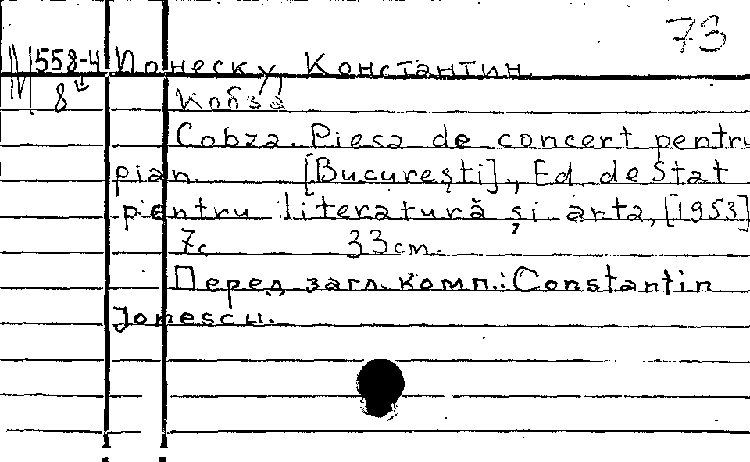 73
М 558-4 Йонеску, Константин
8° Кобза
Cobza. Piesa de concert pentru
pian. [Bucureşti], Ed. de Stat
pentru literatură şi arta, [1953]
7с 33cm.
Перед загл. комп.: Constantin
Jonescu.